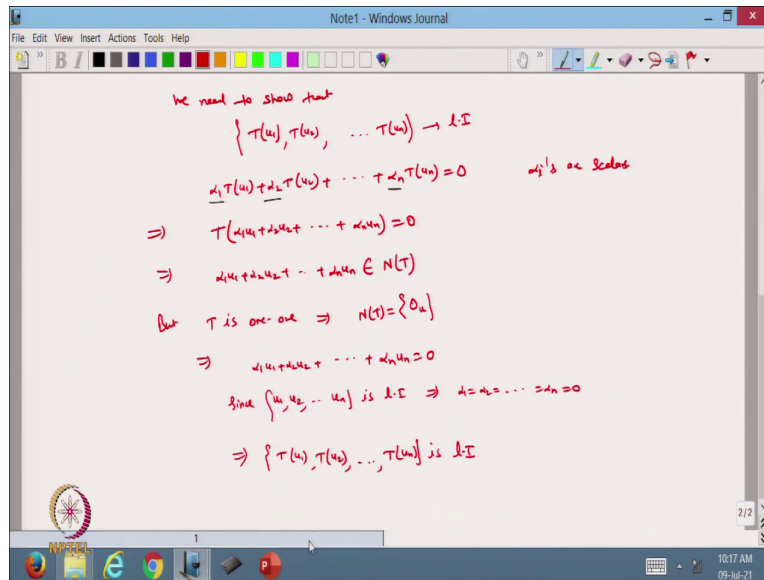 Note1 - Windows Journal
File Edit View Insert Actions Tools Help
We need to show that
{T(u₁), T(u₂), ... T(uₙ)} → l.I
α₁T(u₁)+α₂T(u₂)+ ⋯ + αₙT(uₙ)=0 αⱼ's are Scalars
⇒ T(α₁u₁+α₂u₂+ ⋯ + αₙuₙ)=0
⇒ α₁u₁+α₂u₂+ ⋯ + αₙuₙ ∈ N(T)
But T is one-one ⇒ N(T)={0ᵤ}
⇒ α₁u₁+α₂u₂+ ⋯ + αₙuₙ=0
Since {u₁, u₂, .. uₙ} is l.I ⇒ α₁=α₂= ... =αₙ=0
⇒ {T(u₁), T(u₂), ..., T(uₙ)} is l.I
2/2
NPTEL
1
10:17 AM
09-Jul-21